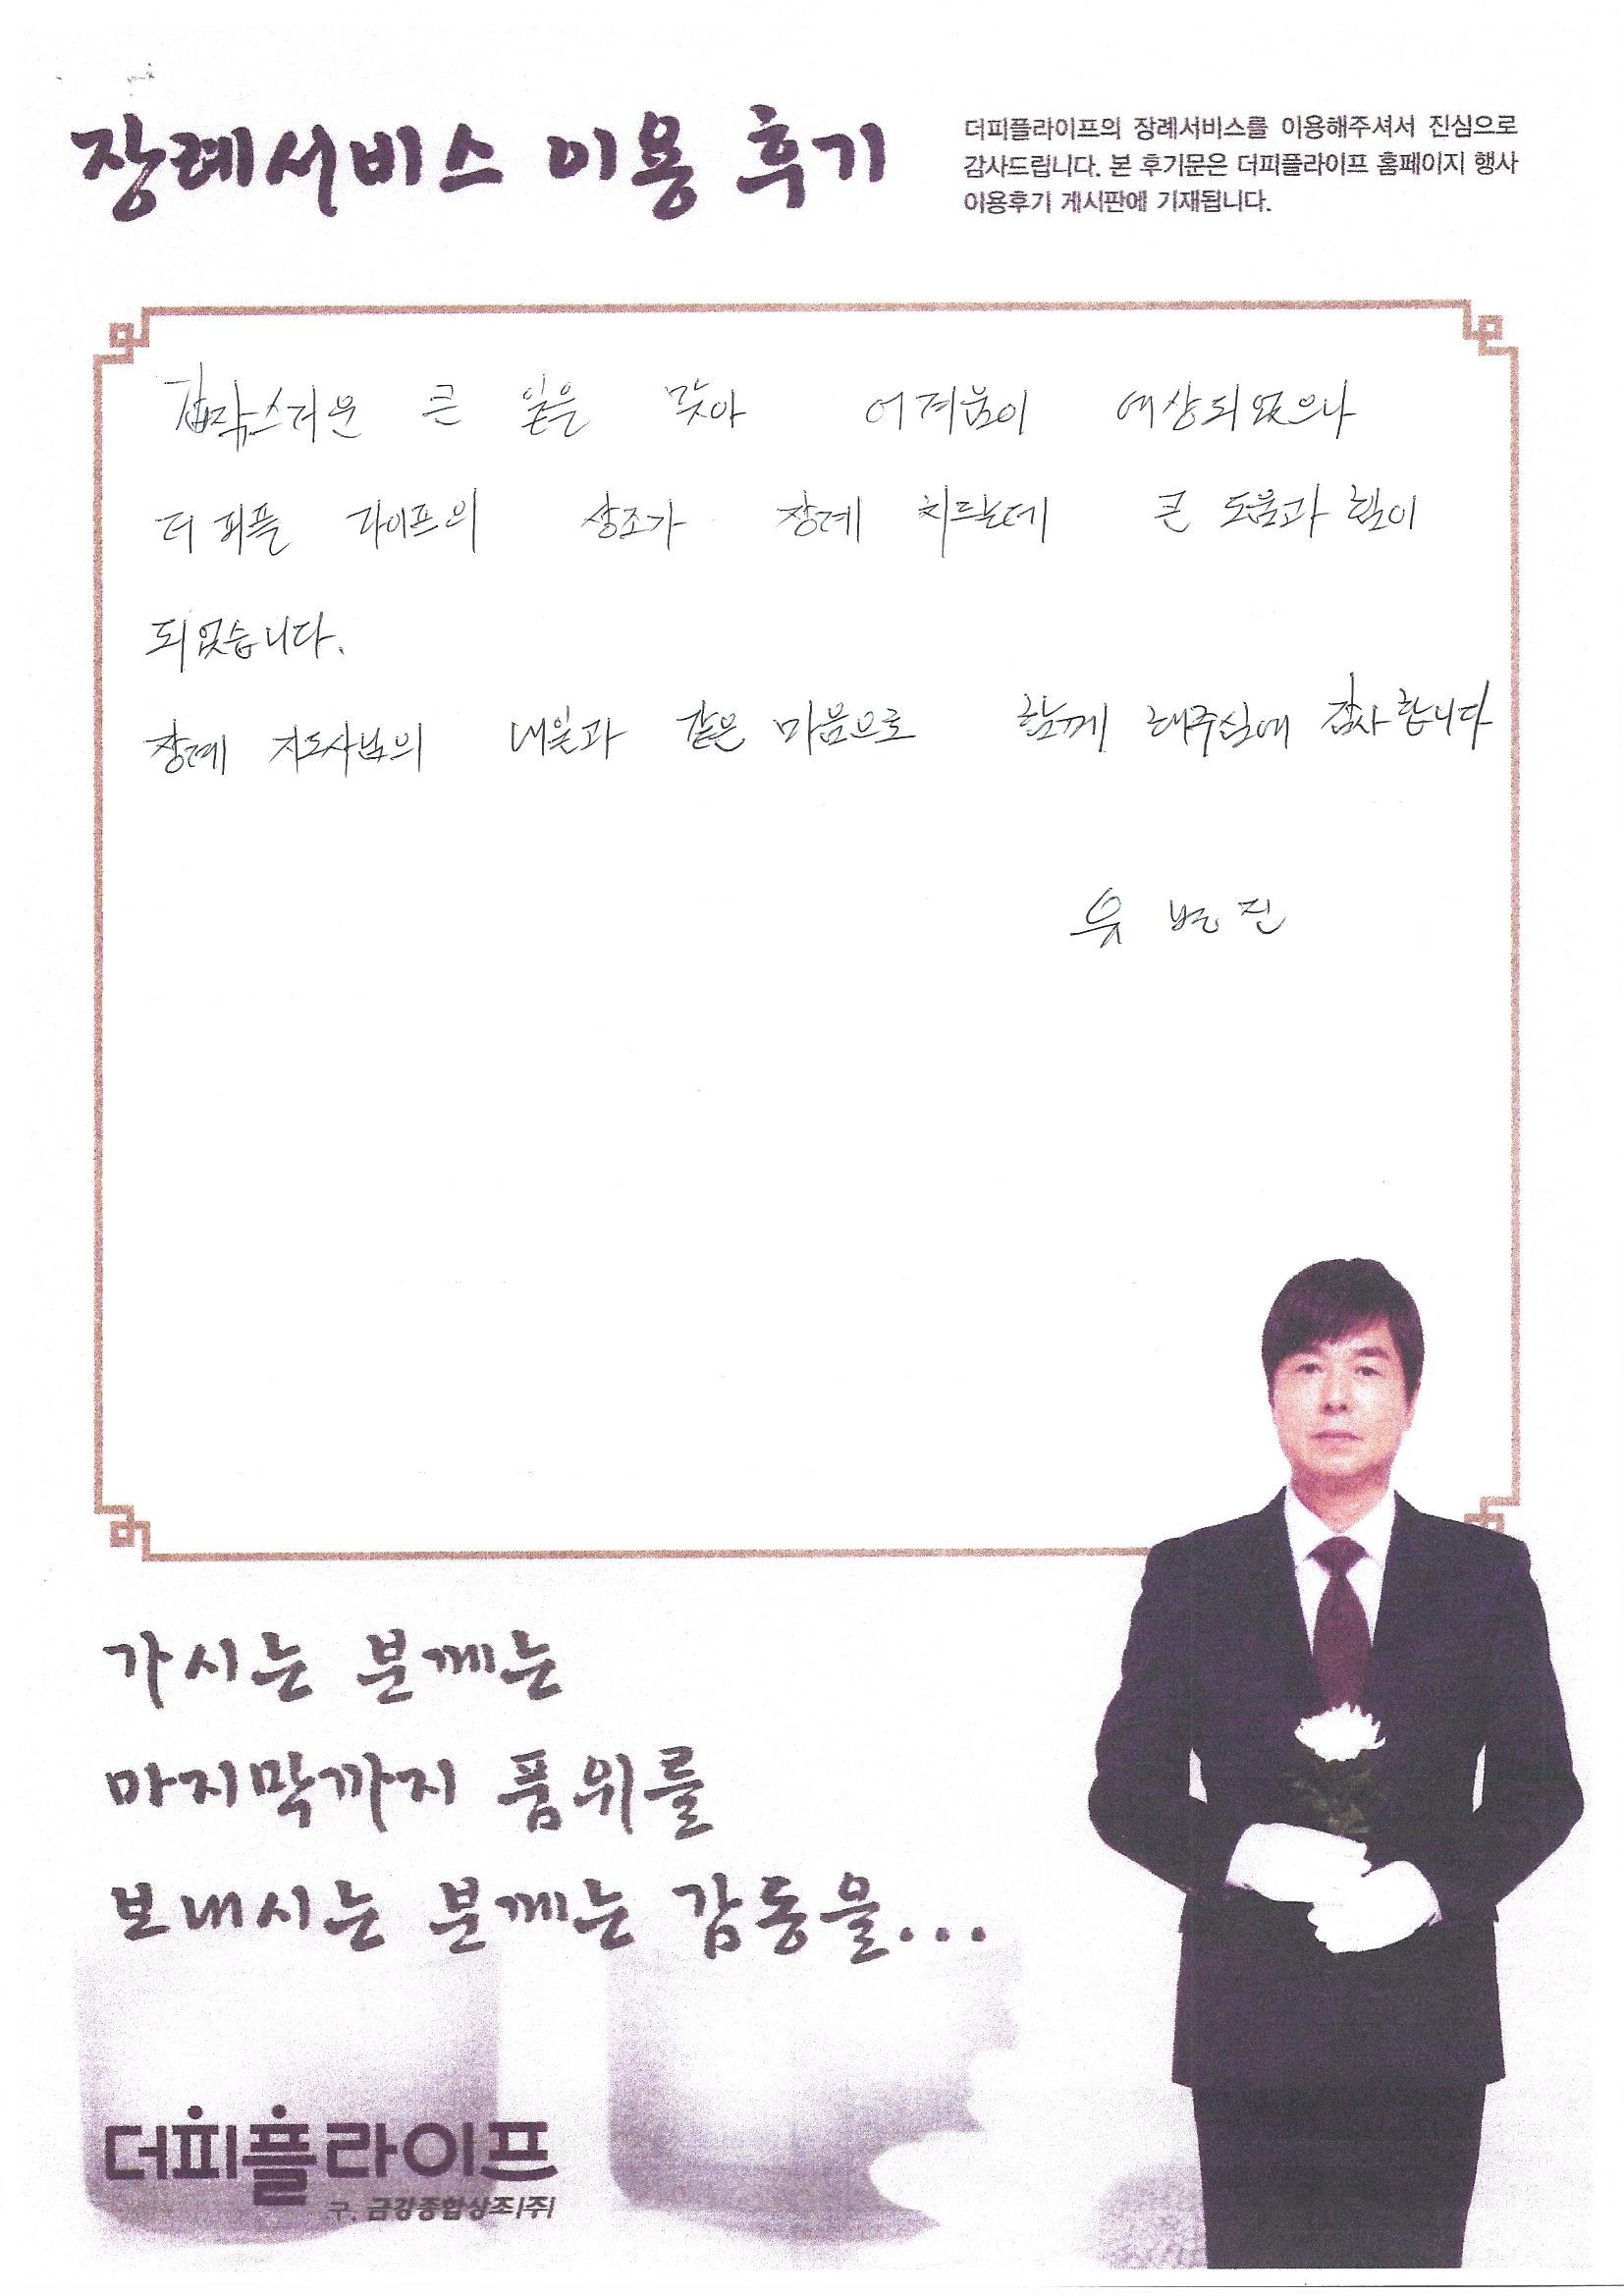 장례서비스 이용 후기
더피플라이프의 장례서비스를 이용해주셔서 진심으로
감사드립니다. 본 후기문은 더피플라이프 홈페이지 행사
이용후기 게시판에 기재됩니다.
갑작스러운 큰 일은 맞아 어려움이 예상되었으나
더 피플 라이프의 상조가 장례 치르는데 큰 도움과 힘이
되었습니다.
장례 지도사님의 내일과 같은 마음으로 함께 해주심에 감사합니다
유 진
가시는 분께는
마지막까지 품위를
보내시는 분께는 감동을...
더피플라이프
구. 금강종합상조(주)